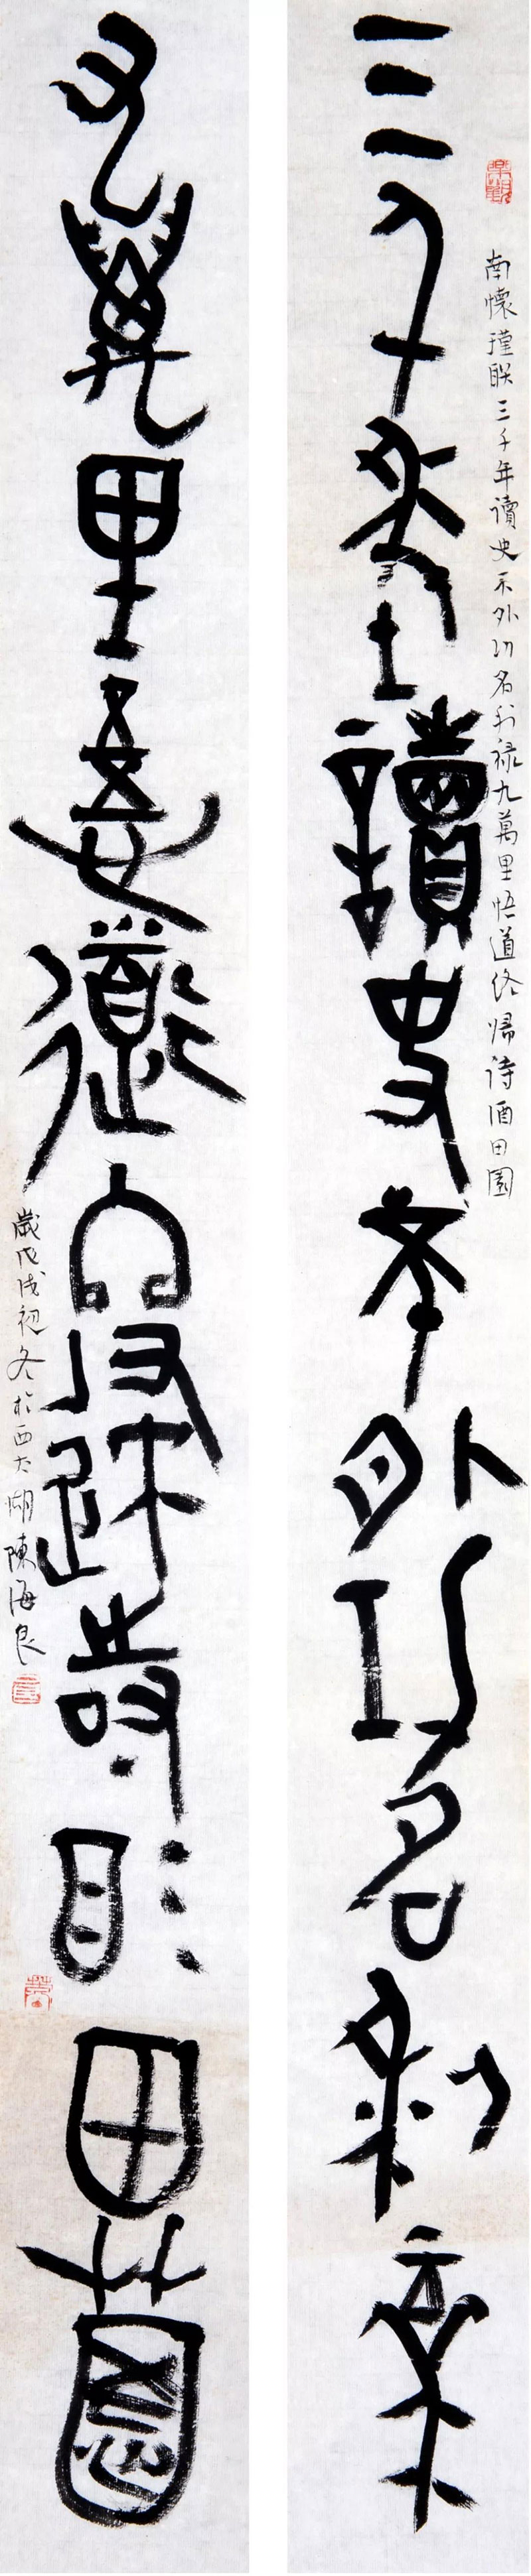 南懷瑾联三千年讀史不外功名利禄九萬里悟道终歸诗酒田園
三千年讀史不外功名利禄
九萬里悟道終歸詩酒田園
歲戊戌初冬於西太湖陳海良